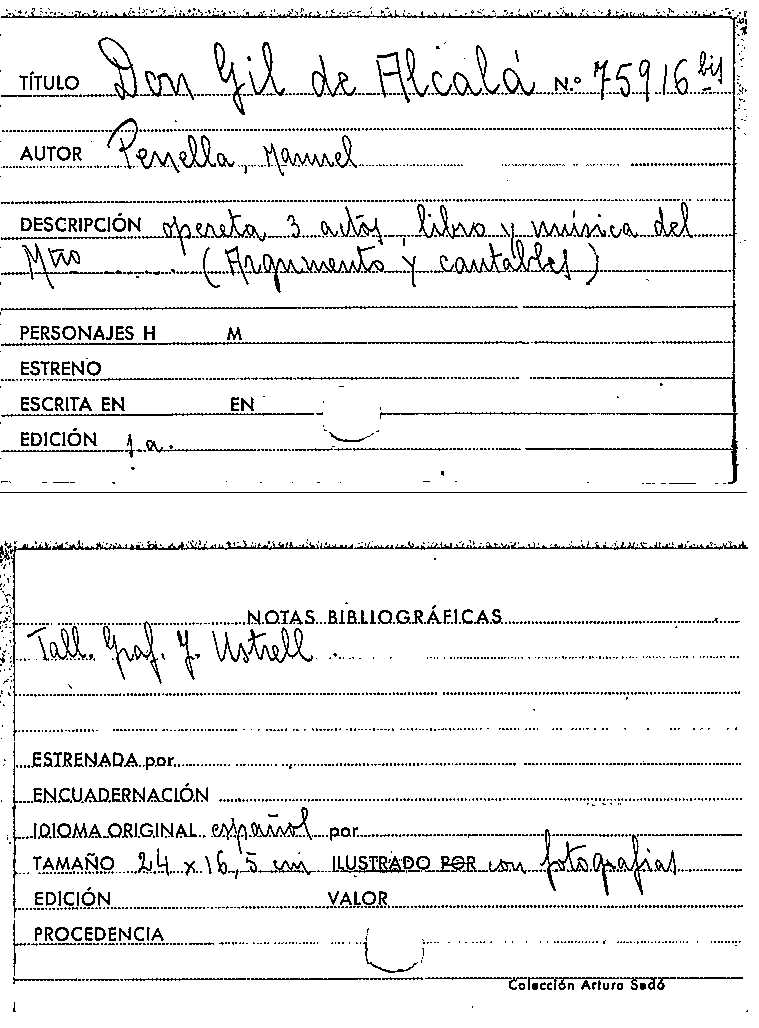 TÍTULO Don Gil de Alcalá N.º 75916 bis
AUTOR Penella, Manuel
DESCRIPCIÓN opereta 3 actos, libro y música del
Mtro ........ (Argumento y cantables)
PERSONAJES H M
ESTRENO
ESCRITA EN EN
EDICIÓN s.a.
NOTAS BIBLIOGRÁFICAS
Tall. Graf. J. Ustrell.
ESTRENADA por
ENCUADERNACIÓN
IDIOMA ORIGINAL español por
TAMAÑO 24 x 16,5 cm ILUSTRADO POR con fotografias
EDICIÓN VALOR
PROCEDENCIA
Colección Arturo Sedó